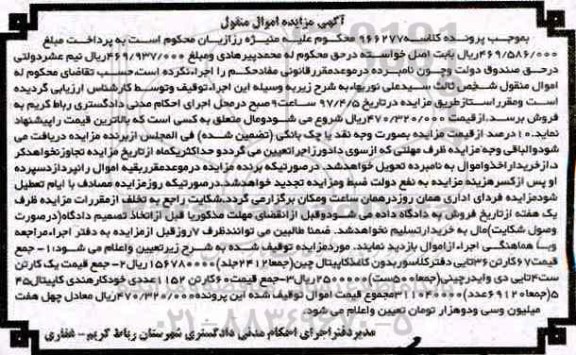 آگهی مزایده اموال منقول
بموجب پرونده کلاسه ۹۶۶۲۷۷ محکوم علیه منیژه رزازیان محکوم است به پرداخت مبلغ
۴۶۹/۵۸۶/۰۰۰ریال بابت اصل خواسته درحق محکوم له محمدپیرهادی ومبلغ ۴۶۹/۹۳۷/۰۰۰ریال نیم عشردولتی
درحق صندوق دولت وچون نامبرده درموعدمقررقانونی مفادحکم را اجراءنکرده است،حسب تقاضای محکوم له
اموال منقول شخص ثالث سیدعلی نوریها،به شرح زیربه وسیله این اجراء،توقیف وتوسط کارشناس ارزیابی گردیده
است ومقرراستازطریق مزایده درتاریخ ۹۷/۴/۵ ساعت۹ صبح درمحل اجرای احکام مدنی دادگستری رباط کریم به
فروش برسد.ازقیمت ۴۷۰/۳۲۰/۰۰۰ریال شروع می شودومال متعلق به کسی است که بالاترین قیمت راپیشنهاد
نماید.۱۰درصد از قیمت مزایده بصورت وجه نقد یا چک بانکی (تضمین شده) فی المجلس ازبرنده مزایده دریافت می
شودوالباقی وجه مزایده ظرف مهلتی که ازسوی دادورزاجراتعیین می گرددو حداکثریکماه ازتاریخ مزایده تجاوزنخواهدکر
د،ازخریداراخذواموال به نامبرده تحویل خواهدشد. درصورتیکه برنده مزایده درموعدمقرربقیه اموال رانپردازدسپرده
او پس ازکسرهزینه مزایده به نفع دولت ضبط ومزایده تجدید خواهدشد.درصورتیکه روزمزایده مصادف با ایام تعطیل
شودمزایده فردای اداری همان روزدرهمان ساعت ومکان برگزارمی گردد.شکایت راجع به تخلف ازمقررات مزایده ظرف
یک هفته ازتاریخ فروش به دادگاه داده می شودوقبل ازانقضای مهلت مذکوریا قبل ازاتخاذ تصمیم دادگاه(درصورت
وصول شکایت)مال به خریدارتسلیم نخواهدشد. ضمنا طالبین می توانندظرف ۷روزقبل ازمزایده به دفتر اجراءمراجعه
وبا هماهنگی اجراءازاموال بازدید نمایند. موردمزایده توقیف شده به شرح زیرتعیین واعلام می شود:۱- جمع
قیمت۶۷کارتن۳۶تایی دفترکلاسوربدون کاغذکاپیتال چین(جمعا۲۴۱۲جلد)۱۵۶۷۸۰۰۰۰ریال۲- جمع قیمت یک کارتن
ست۴تایی دی وایدرچینی(جمعا۵۰۰ست)۲۵۰۰۰۰۰ریال۳-جمع قیمت۶۰کارتن ۱۱۵۲عددی خودکارهندی کاپیتال۴۵
۵(جمعا۶۹۱۲۰عدد)۳۱۱۰۴۰۰۰۰مجموع قیمت اموال توقیف شده این پرونده۴۷۰/۳۲۰/۰۰۰ریال معادل چهل هفت
میلیون وسی ودوهزار تومان تعیین واعلام می شود.
مدیردفتراجرای احکام مدنی دادگستری شهرستان رباط کریم- غفاری
۰۲۱-۸۸۳۴۹۶۷۰-۵